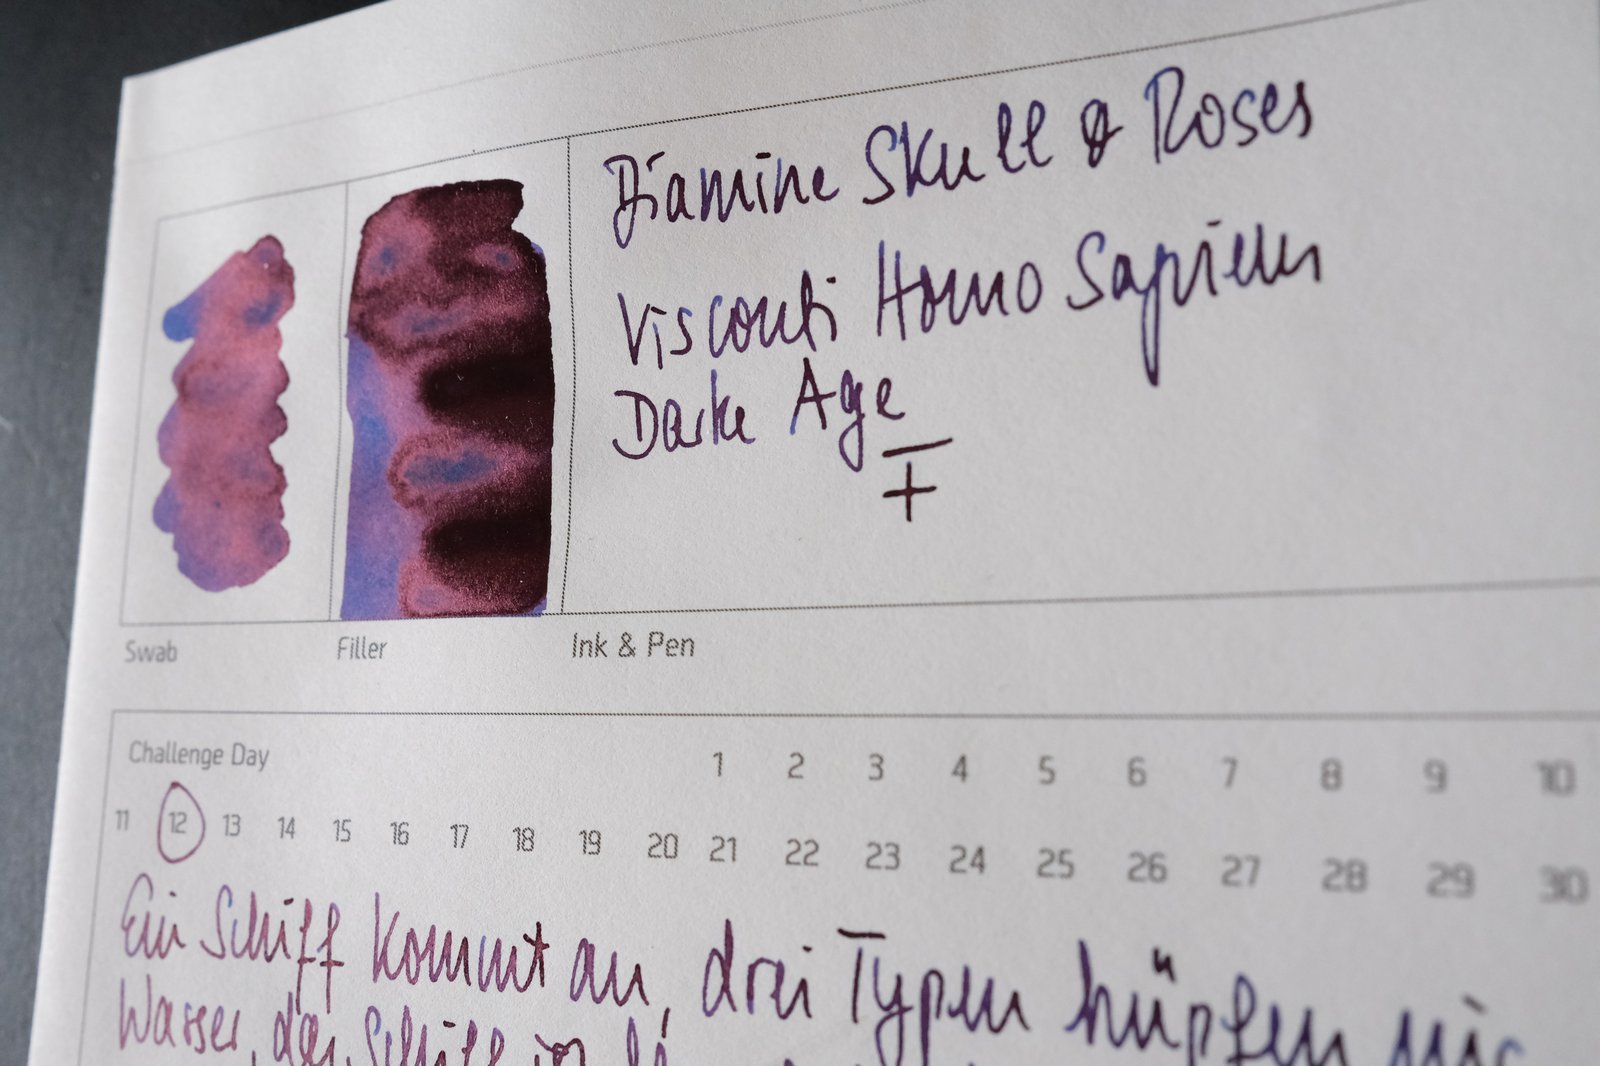 Diamine Skull & Roses
Visconti Homo Sapiens
Dark Age
F
Swab
Filler
Ink & Pen
Challenge Day 1 2 3 4 5 6 7 8 9 10
11 12 13 14 15 16 17 18 19 20 21 22 23 24 25 26 27 28 29 30
Ein Schiff kommt an, drei Typen hüpfen
Wasser, das Schiff